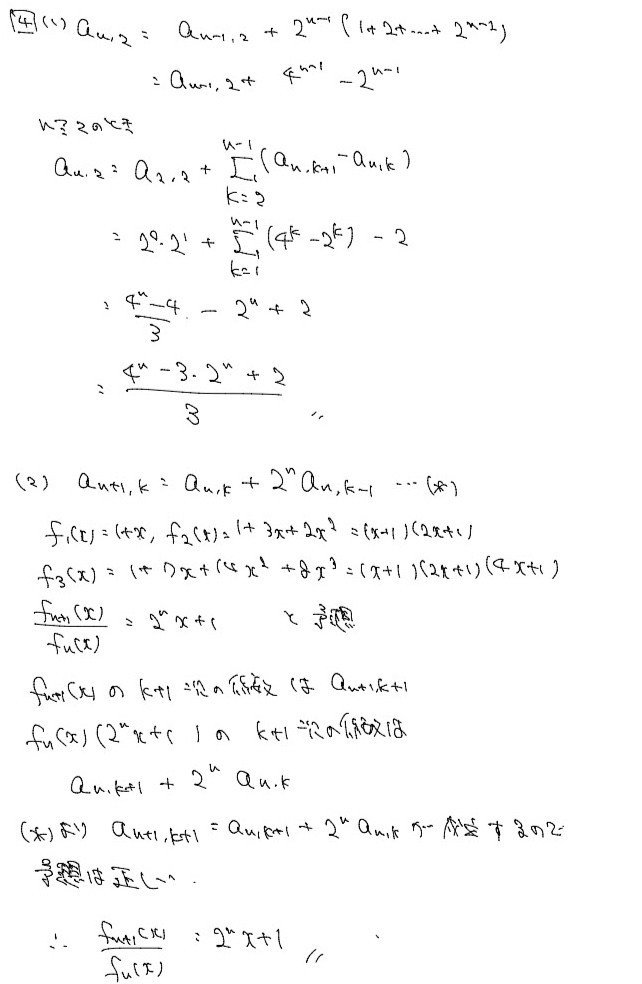 4 (1) a_{n,2} = a_{n-1,2} + 2^{n-1}(1+2+…+2^{n-2})
= a_{n-1,2} + 4^{n-1} - 2^{n-1}
n≧2のとき
a_{n,2} = a_{2,2} + Σ_{k=2}^{n-1}(a_{n,k+1} - a_{n,k})
= 2^0・2^1 + Σ_{k=1}^{n-1}(4^k - 2^k) - 2
= \frac{4^n-4}{3} - 2^n + 2
= \frac{4^n - 3・2^n + 2}{3} 〃
(2) a_{n+1,k} = a_{n,k} + 2^n a_{n,k-1} …(*)
f_1(x) = 1+x, f_2(x) = 1+3x+2x^2 = (x+1)(2x+1)
f_3(x) = 1+7x+14x^2+8x^3 = (x+1)(2x+1)(4x+1)
\frac{f_{n+1}(x)}{f_n(x)} = 2^n x+1 と予想
f_{n+1}(x) の k+1次の係数は a_{n+1,k+1}
f_n(x)(2^n x+1) の k+1次の係数は
a_{n,k+1} + 2^n a_{n,k}
(*)より a_{n+1,k+1} = a_{n,k+1} + 2^n a_{n,k} が成立するので
予想は正しい.
∴ \frac{f_{n+1}(x)}{f_n(x)} = 2^n x+1 〃